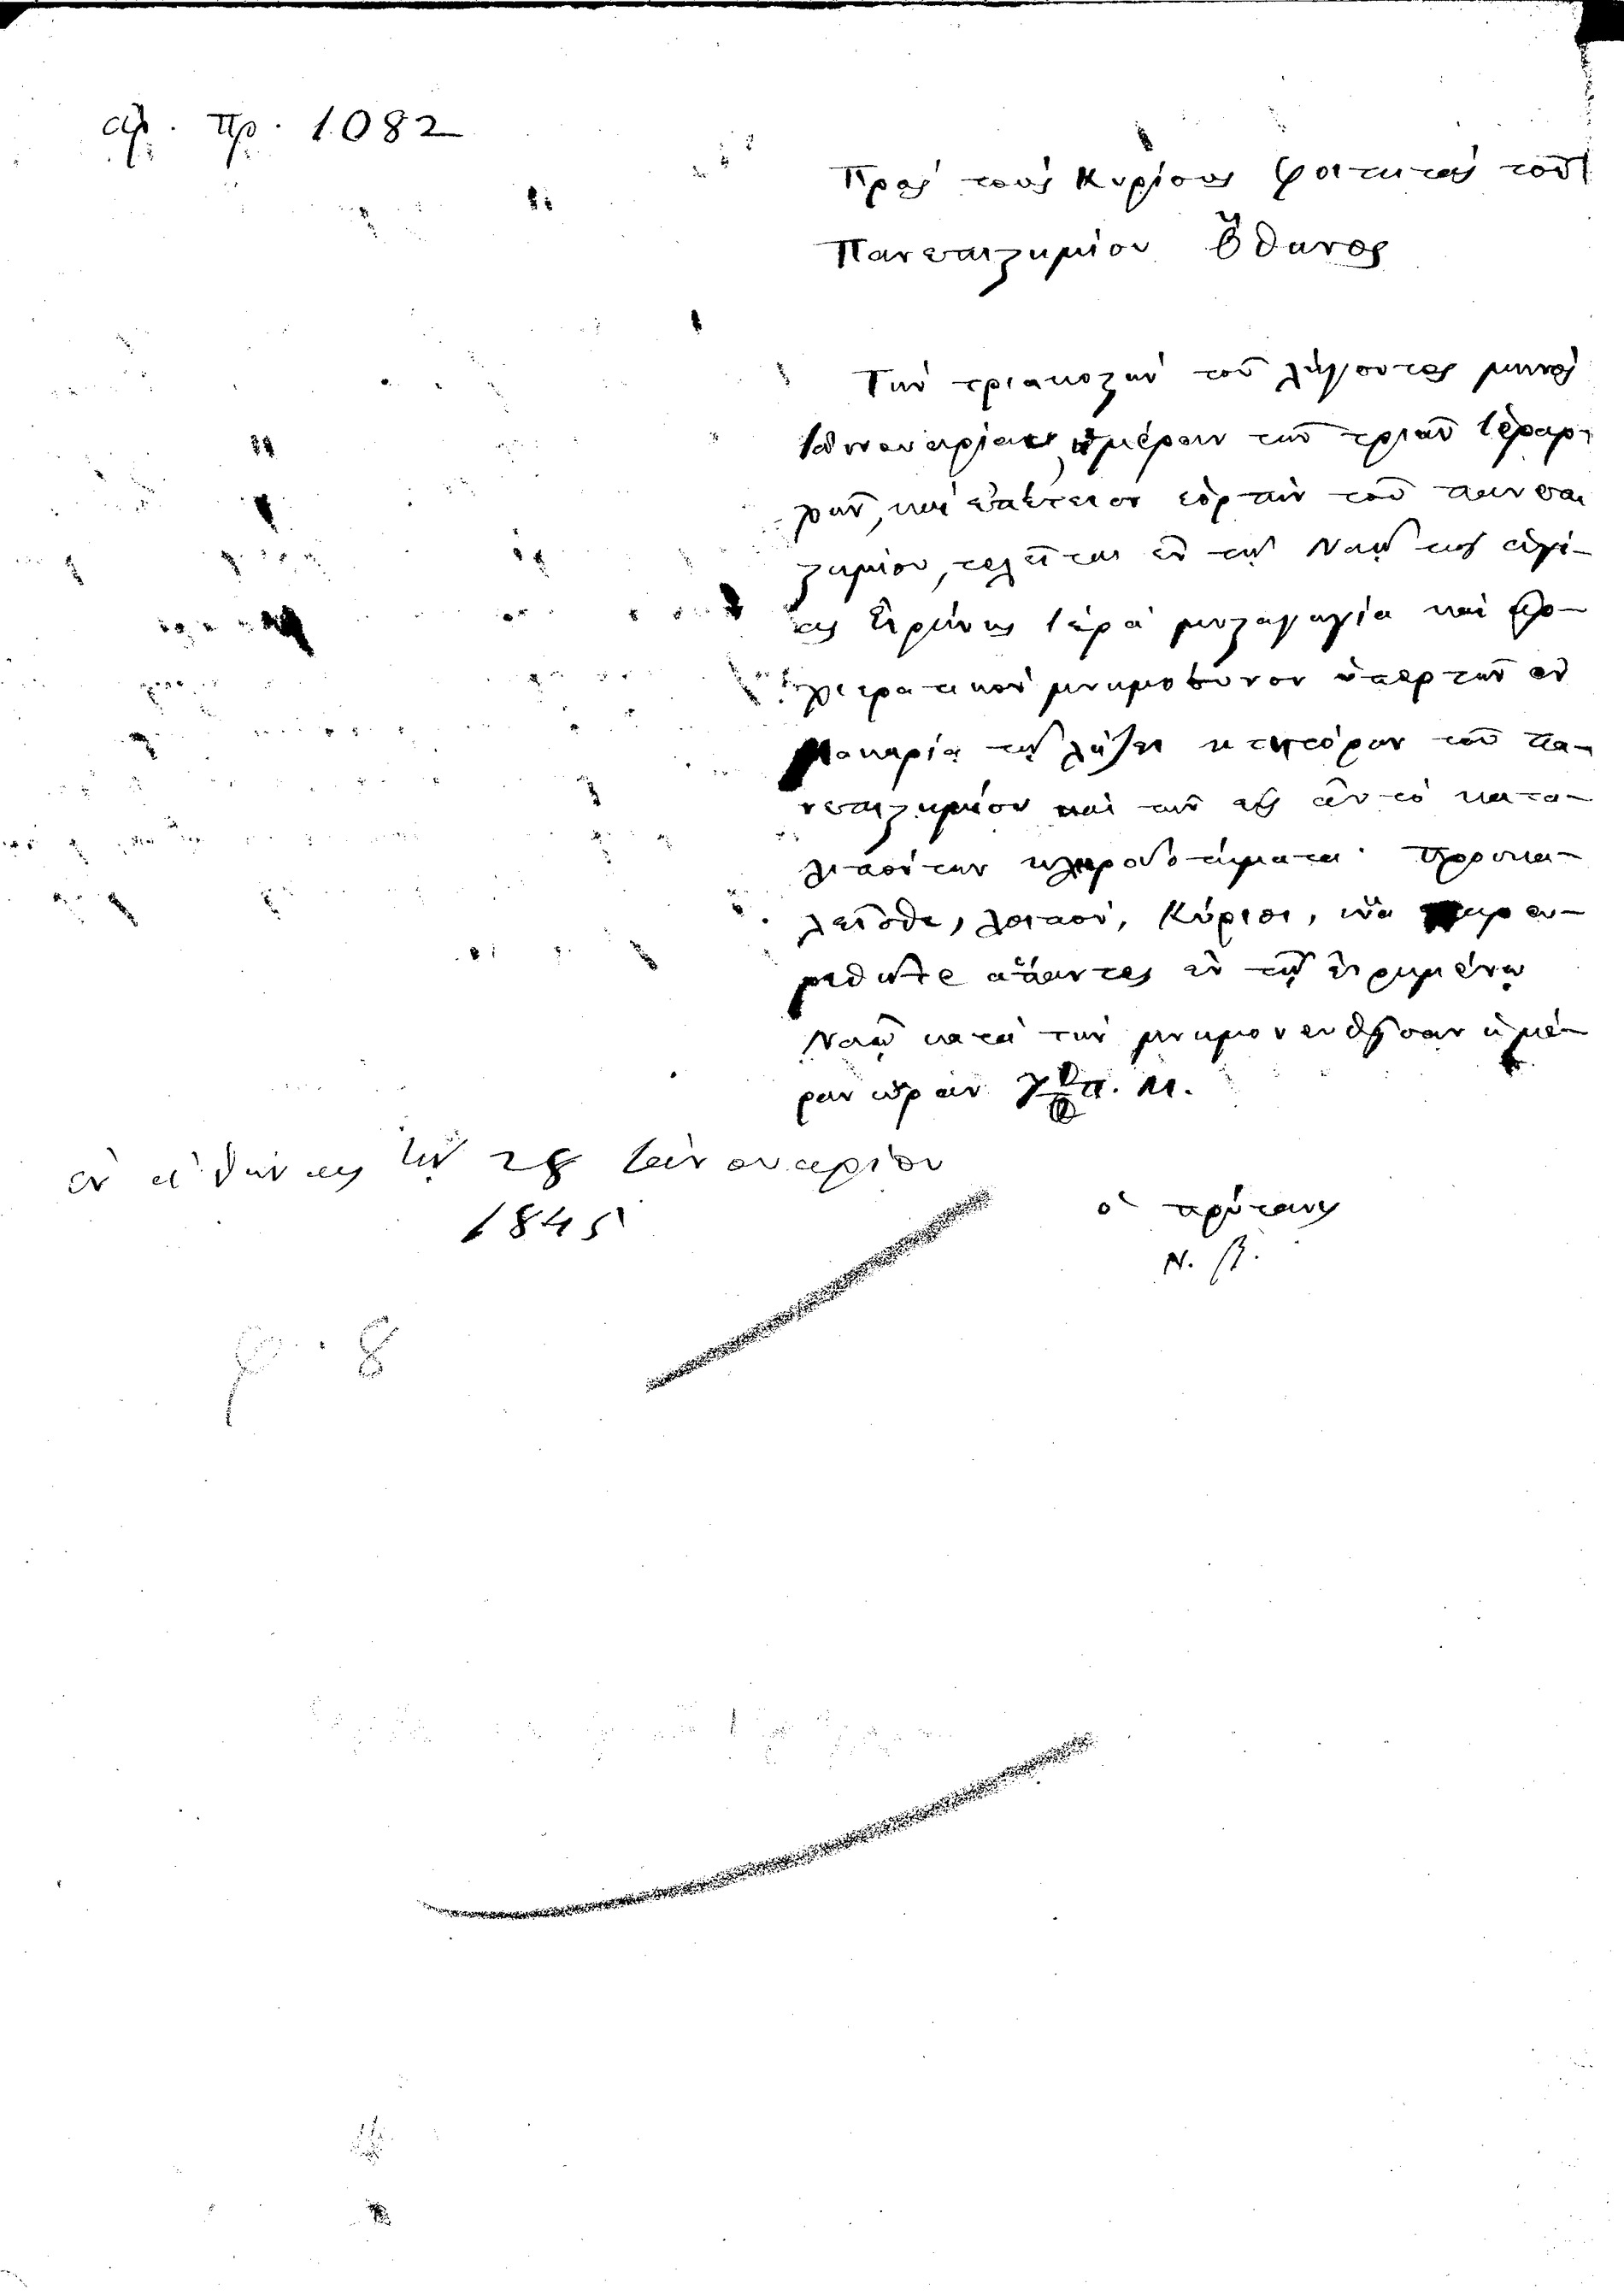 ἀρ. πρ. 1082
Πρὸς τοὺς Κυρίους φοιτητὰς τοῦ
Πανεπιστημίου Ὄθωνος
Τὴν τριακοστὴν τοῦ λήγοντος μηνὸς
Ἰαννουαρίου, ἡμέραν τῶν τριῶν Ἱεραρ-
χῶν, καὶ ἐπέτειον ἑορτὴν τοῦ πανεπι
στημίου, τελεῖται ἐν τῷ Ναῷ τῆς ἁγί-
ας Εἰρήνης ἱερὰ μυσταγωγία καὶ ἀρ-
χιερατικὸν μνημόσυνον ὑπὲρ τῶν ἐν
μακαρίᾳ τῇ λήξει κτητόρων τοῦ πα-
νεπιστημίου καὶ τῶν εἰς αὐτὸ κατα-
λιπόντων κληροδοτήματα. Προσκα-
λεῖσθε, λοιπὸν, Κύριοι, ἵνα παρευ-
ρεθῆτε ἅπαντες ἐν τῷ εἰρημένῳ
Ναῷ κατὰ τὴν μνημονευθεῖσαν ἡμέ-
ραν ὥραν π. μ.
ἐν ἀθήναις τῇ 28 Ἰαννουαρίου
1845
ὁ πρύτανις
Ν. Β.
φ. 8